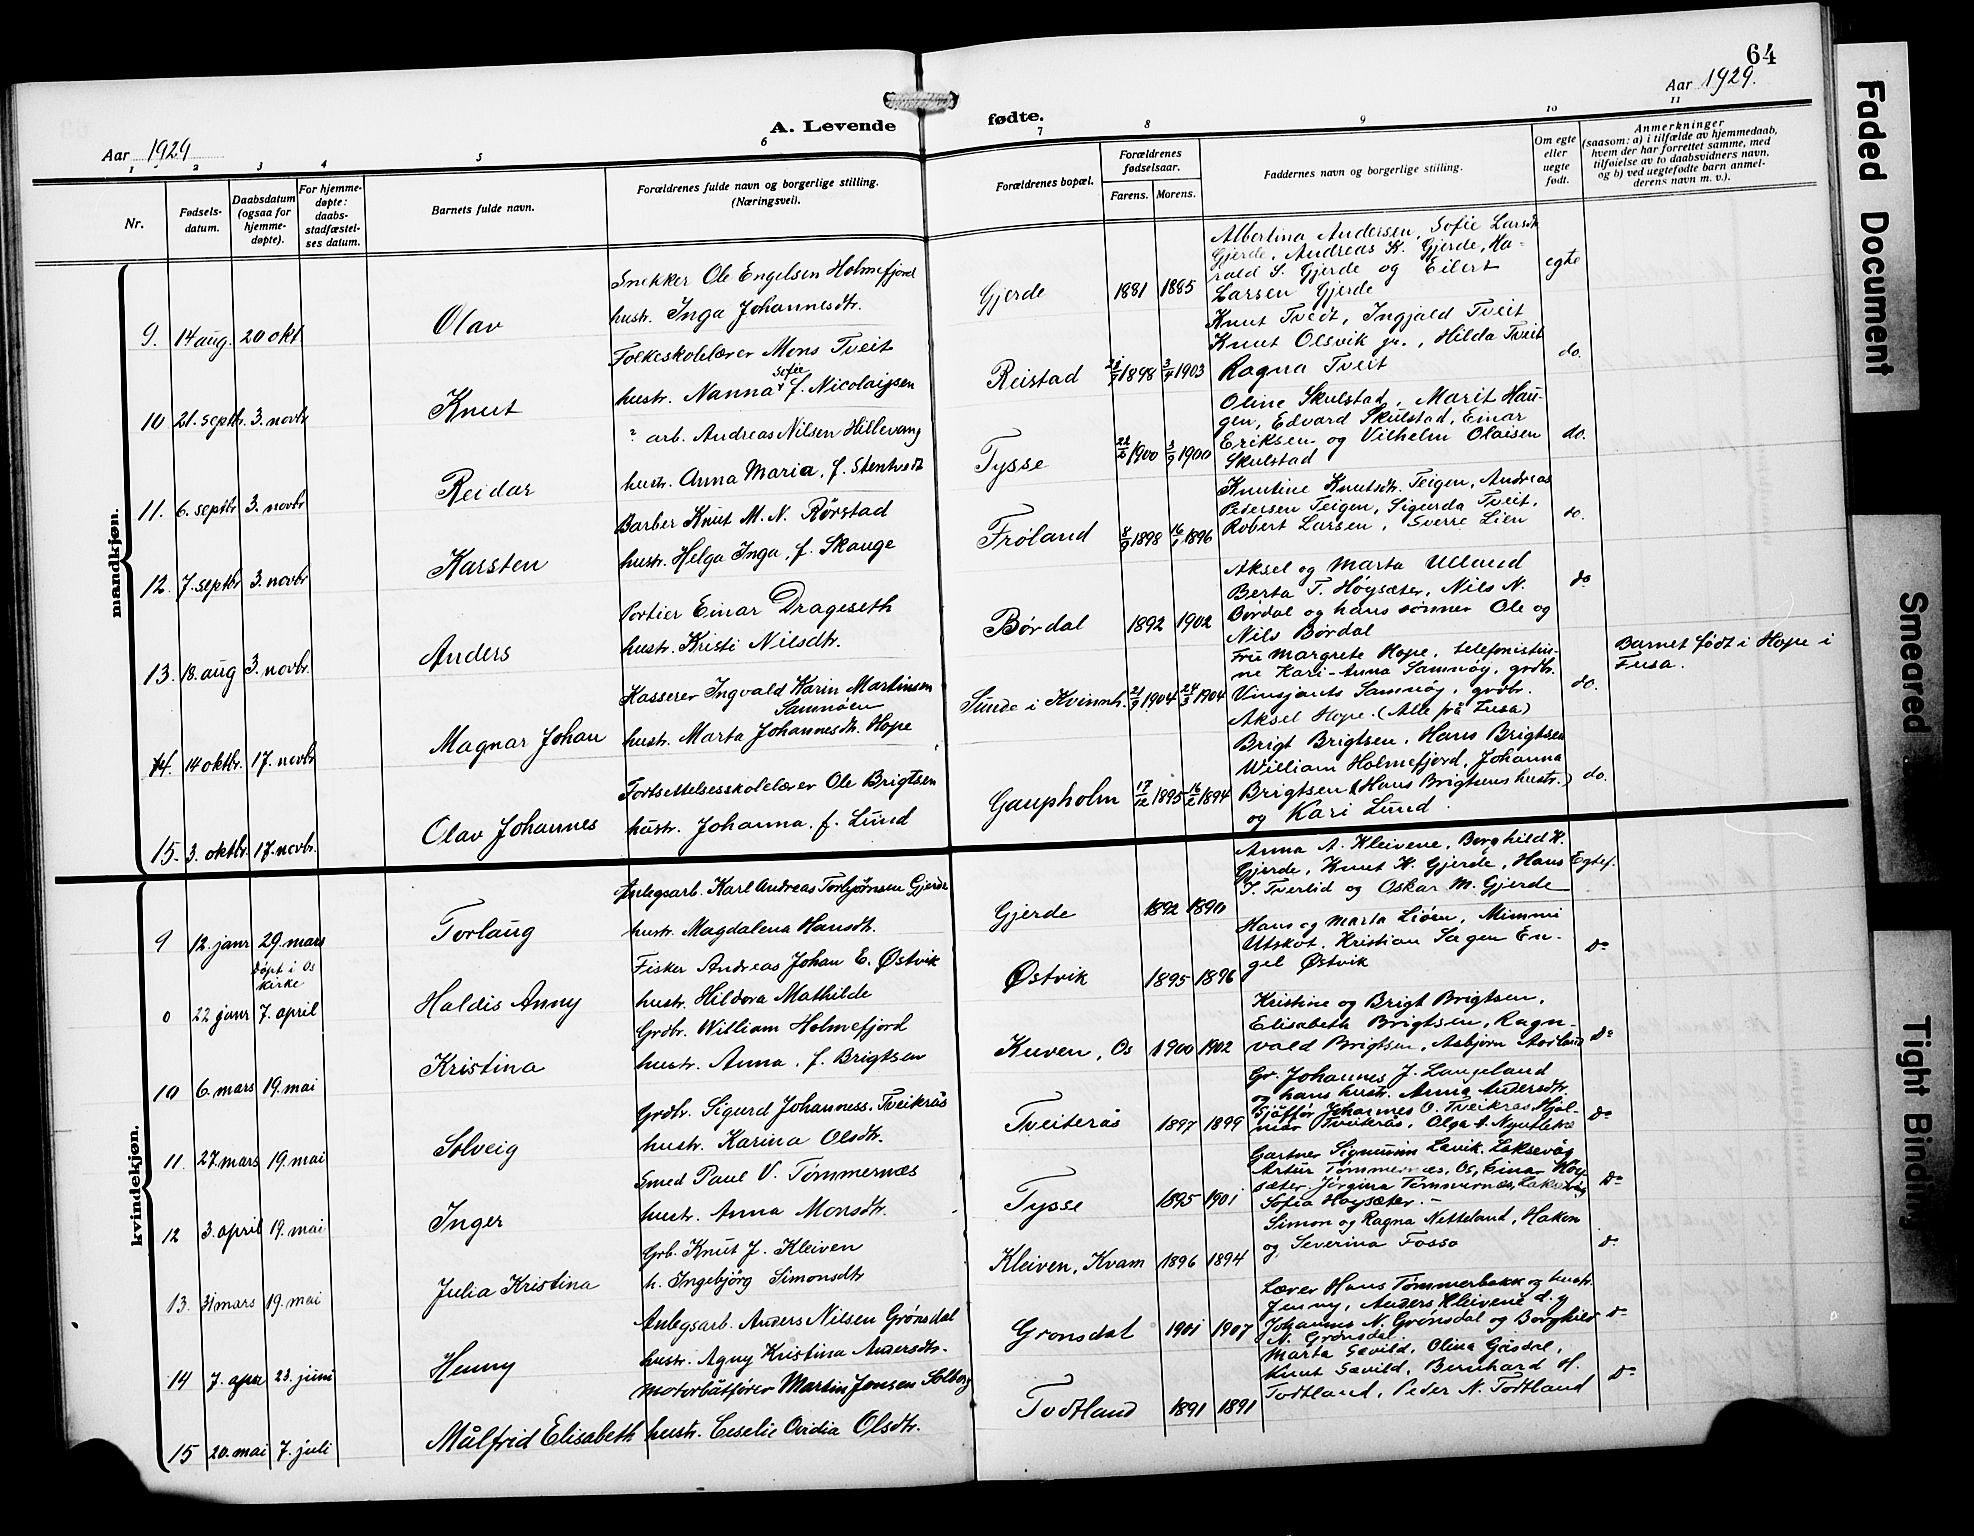 64
Aar 1929.
Aar 1929
A. Levende fødte.
1 2 3 4 5 6 7 8 9 10 11
Nr.
Fødsels-
datum.
Daabsdatum
(ogsaa for
hjemme-
døpte).
For hjemme-
døpte:
daabs-
stadfæstel-
ses datum.
Barnets fulde navn.
Forældrenes fulde navn og borgerlige stilling.
(Næringsvei).
Forældrenes bopæl.
Forældrenes
fødselsaar.
Farens. Morens.
Faddernes navn og borgerlige stilling.
Om egte
eller
uegte
født.
Anmerkninger
(saasom: a) i tilfælde av hjemmedaab,
hvem der har forrettet samme, med
tilføielse av to daabsvidners navn,
og b) ved uegtefødte barn anmel-
derens navn m. v.).
mandkjøn.
9. 14 aug. 20 okt
Olav
Snekker Ole Engelsen Holmefjord
hustr. Inga Johannesdtr.
Gjerde 1881 1885
Albertina Andersen, Sofie Larsdtr
Gjerde, Andreas K. Gjerde, Ha-
rald S. Gjerde og Eilert
Larsen Gjerde
egte
10 21. septbr. 3. novbr
Knut
Folkeskolelærer Mons Tveit
hustr. Nanna Sofie f. Nicolaysen
Reistad 1898 1903
Knut Tveit, Ingjald Tveit
Knut Olsvik jr., Hilda Tveit
Ragna Tveit
do.
11. 6. septbr 3. novbr
Reidar
arb. Andreas Nilsen Hillevang
hustr. Anna Maria, f. Stentvedt
Tysse 1900 1900
Oline Skulstad, Marit Hau-
gen, Edvard Skulstad, Einar
Eriksen og Vilhelm Olaisen
Skulstad
do.
12. 7. septbr 3. novbr
Karsten
Barber Knut M. N. Rørstad
hustr. Helga Inga, f. Skauge
Frøland 8/9 1898 1896
Knutine Knutsdtr. Teigen, Andreas
Pedersen Teigen, Sigurda Tveit,
Robert Larsen, Sverre Lien
do.
13. 18. aug 3. novbr.
Anders
Portier Einar Drageseth
hustr. Kristi Nilsdtr.
Børdal 1892 1902
Aksel og Marta Ulland
Berta T. Høysæter, Nils N.
Børdal og hans sønner Ole og
Nils Børdal
do
14. 14 oktbr. 17. novbr
Magnar Johan
Kasserer Ingvald Karin Martinsen
Samnøen
hustr. Marta Johannesdtr. Hope
Sunde i Kvinnh. 1904 24/3 1904
Fru Margrete Hope, telefonistin-
ne Kari-Anna Samnøy, grdbr.
Vinsjants Samnøy, grdbr.
Aksel Hope. (Alle på Fusa)
do.
Barnet født i Hope i
Fusa.
15. 3. oktbr. 17. novbr.
Olav Johannes
Fortsettelsesskolelærer Ole Brigtsen
hustr. Johanna, f. Lund
Gaupholm 17/12 1895 16/2 1894
Brigt Brigtsen, Hans Brigtsen
William Holmefjord, Johanna
Brigtsen (Hans Brigtsens hustr.)
og Kari Lund.
do.
kvindekjøn.
9 12. janr 29. mars
døpt i Os
kirke
Torlaug
Anlegsarb. Karl Andreas Torbjørnsen Gjerde
hustr. Magdalena Hansdtr.
Gjerde 1892 1890
Anna A. Kleivene, Borghild K.
Gjerde, Knut K. Gjerde, Hans
T. Tverlid og Oskar M. Gjerde
Egtef.
0 22 janr 7. april
Haldis Anny
Fisker Andreas Johan E. Østvik
hustr. Hildora Mathilde
Østvik 1895 1896
Hans og Marta Liøen, Mimmi
Utskot, Kristian Sagen En-
gel Østvik
do
10 6. mars 19. mai
Kristina
Grdbr. William Holmefjord
hustr. Anna, f. Brigtsen
Kuven, Os 1900 1902
Kristine og Brigt Brigtsen,
Elisabeth Brigtsen, Ragn-
vald Brigtsen, Asbjørn Aarland
do
11. 27. mars 19. mai
Solveig
Grdbr. Sigurd Johanness. Tveiterås
hustr. Karina Olsdtr.
Tveiterås 1897 1899
Gr. Johannes J. Langeland
og hans hustr. Anna Andersdtr.
Sjåffør Johannes O. Tveiterås Hjal-
mar Tveiterås, Olga A.
do
12 3. april 19. mai
Inger
Smed Paul V. Tømmernæs
hustr. Anna Monsdtr.
Tysse 1895 1901
Gartner Sigmunn Lavik, Laksevåg
Artur Tømmernæs, Os, Einar Høy-
sæter, Jørgina Tømmernæs, Laksevåg
Sofia Høysæter.
do
13. 31 mars 19. mai
Julia Kristina
Grb. Knut J. Kleiven
h. Ingebjörg Simonsdtr
Kleiven, Kvam 1896 1894
Simon og Ragna Netteland, Hakon
og Severina Fosso
do
14 7. apr 23. juni
Henny
Anlegsarb. Anders Nilsen Grønsdal
hustr. Agny Kristina Andersdtr.
Grønsdal 1901 1907
Lærer Hans Tømmerbakk og hustr.
Jenny, Anders Kleivene d. y
Johannes N. Grønsdal og Borghild
N. Grønsdal.
do
15 20. mai 7. juli
Målfrid Elisabeth
Motorbåtfører Martin Jensen Solberg
hustr. Ceselie Ovidia Olsdtr.
Todtland 1891 1891
Marta Sævild, Olina Gåsdal,
Knut Sævild, Bernhard H.
Todtland, Peder N. Todtland
do
Faded Document
Smeared
Tight Binding